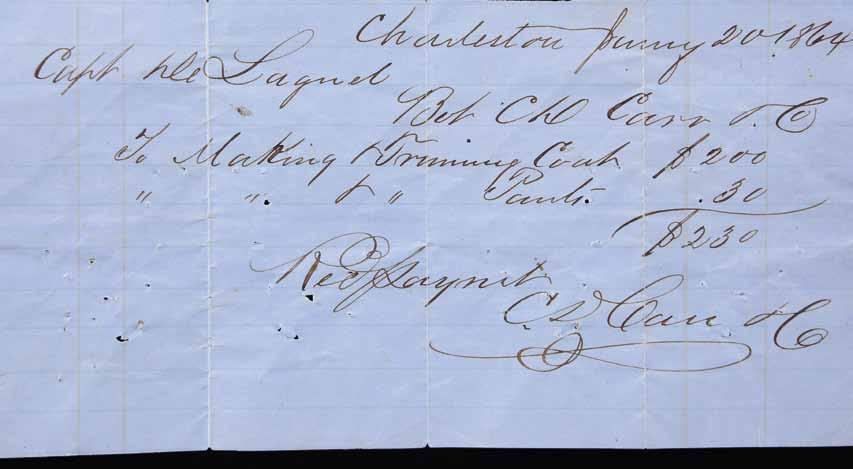 Charleston Jany 20 1864
Capt De Lagnel
Bot C D Carr & Co
To Making & Trimming Coat $200
" " & " Pants. 30
$230
Recd Paymt
C. D. Carr & Co